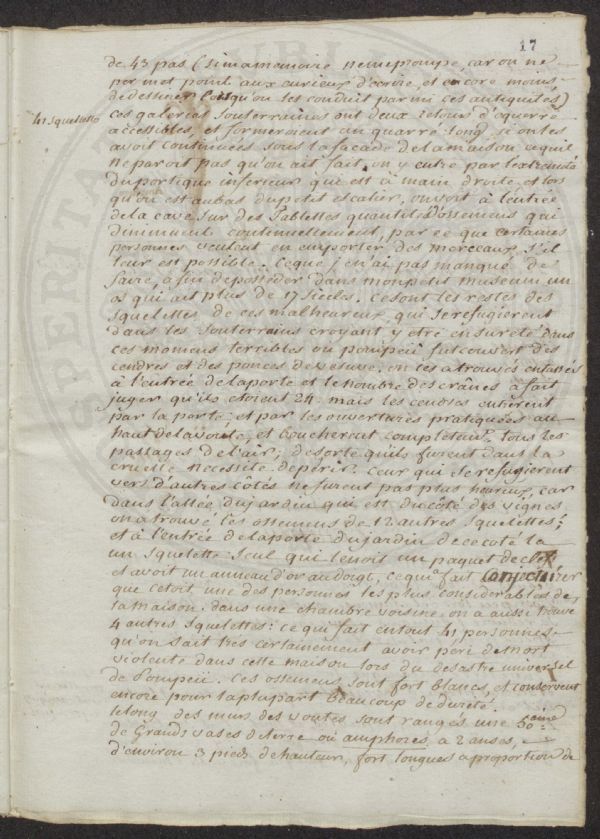 17
de 43 pas (si ma memoire ne me trompe, car on ne
permet point aux curieux d'ecrire, et encore moins
de dessiner lorsqu'on les conduit parmi ces antiquités)
41 squelettes
ces galeries souterraines ont deux retours d'equerre
accessibles, et formeroient un quarré long, si on les
avoit continuées sous la façade de la maison ce qu'il
ne paroit pas qu'on ait fait. on y entre par l'extremité
du portique inferieur qui est à main droite, et lors
qu'on est au bas du petit escalier, on voit à l'entrée
de la cave sur des Tablettes quantité d'ossemens qui
diminuent continuellement, par ce que certaines
personnes veulent en emporter des morceaux s'il
leur est possible. Ce que je n'ai pas manqué de
faire, afin de posseder dans mon petit museum un
os qui ait plus de 17 siecles. ce sont les restes des
squelettes de ces malheureux, qui se refugierent
dans les souterrains croyant y etre en sureté dans
ces momens terribles ou pompeii fut couvert des
cendres et des ponces du vesuve, on les a trouvés entassés
à l'entrée de la porte et le nombre des crânes à fait
juger qu'ils étoient 24. mais les cendres entrerent
par la porte, et par les ouvertures pratiquées au
haut de la voute, et boucherent completemt. tous les
passages de l'air; de sorte qu'ils furent dans la
cruelle necessité de perir. Ceux qui se refugierent
vers d'autres côtés ne furent pas plus heureux, car
dans l'allée du jardin qui est du côté des vignes
on a trouvé les ossemens de 12 autres squelettes;
et à l'entrée de la porte du jardin de ce coté la
un squelette seul qui tenoit un paquet de clefs
et avoit un anneau d'or au doigt, ce qui fait conjecturer
que c'etoit une des personnes les plus considerables de
la maison. dans une chambre voisine on a aussi trouvé
4 autres squelettes: ce qui fait en tout 41 personnes
qu'on sait trés certainement avoir peri de mort
violente dans cette maison lors du desastre universel
de Pompeii. Ces ossemens sont fort blancs, et conservent
encore pour la plupart beaucoup de dureté.
le long des murs des voutes sont rangés une 50aine
de Grands vases de terre ou amphores à 2 anses,
d'environ 3 pieds de hauteur, fort longues a proportion de